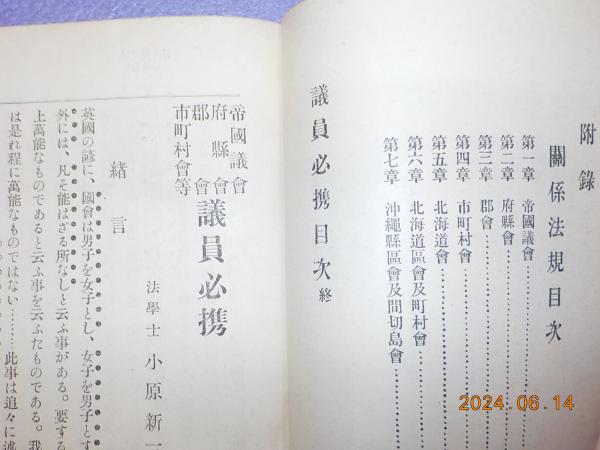 附錄
關係法規目次
第一章 帝國議會
第二章 府縣會
第三章 郡會
第四章 市町村會
第五章 北海道會
第六章 北海道區會及町村會
第七章 沖繩縣區會及間切島會
議員必携目次終
帝國議會
府縣會
郡會
市町村會等
議員必携
法學士 小原新一
緒言
英國の諺に、國會は男子を女子とし、女子を男子とす
外には、凡そ能はざる所なしと云ふ事がある。要する
上萬能なものであると云ふ事を云ふたものである。我
は是れ程に萬能なものではない……此事は追々に述
2024.06.14